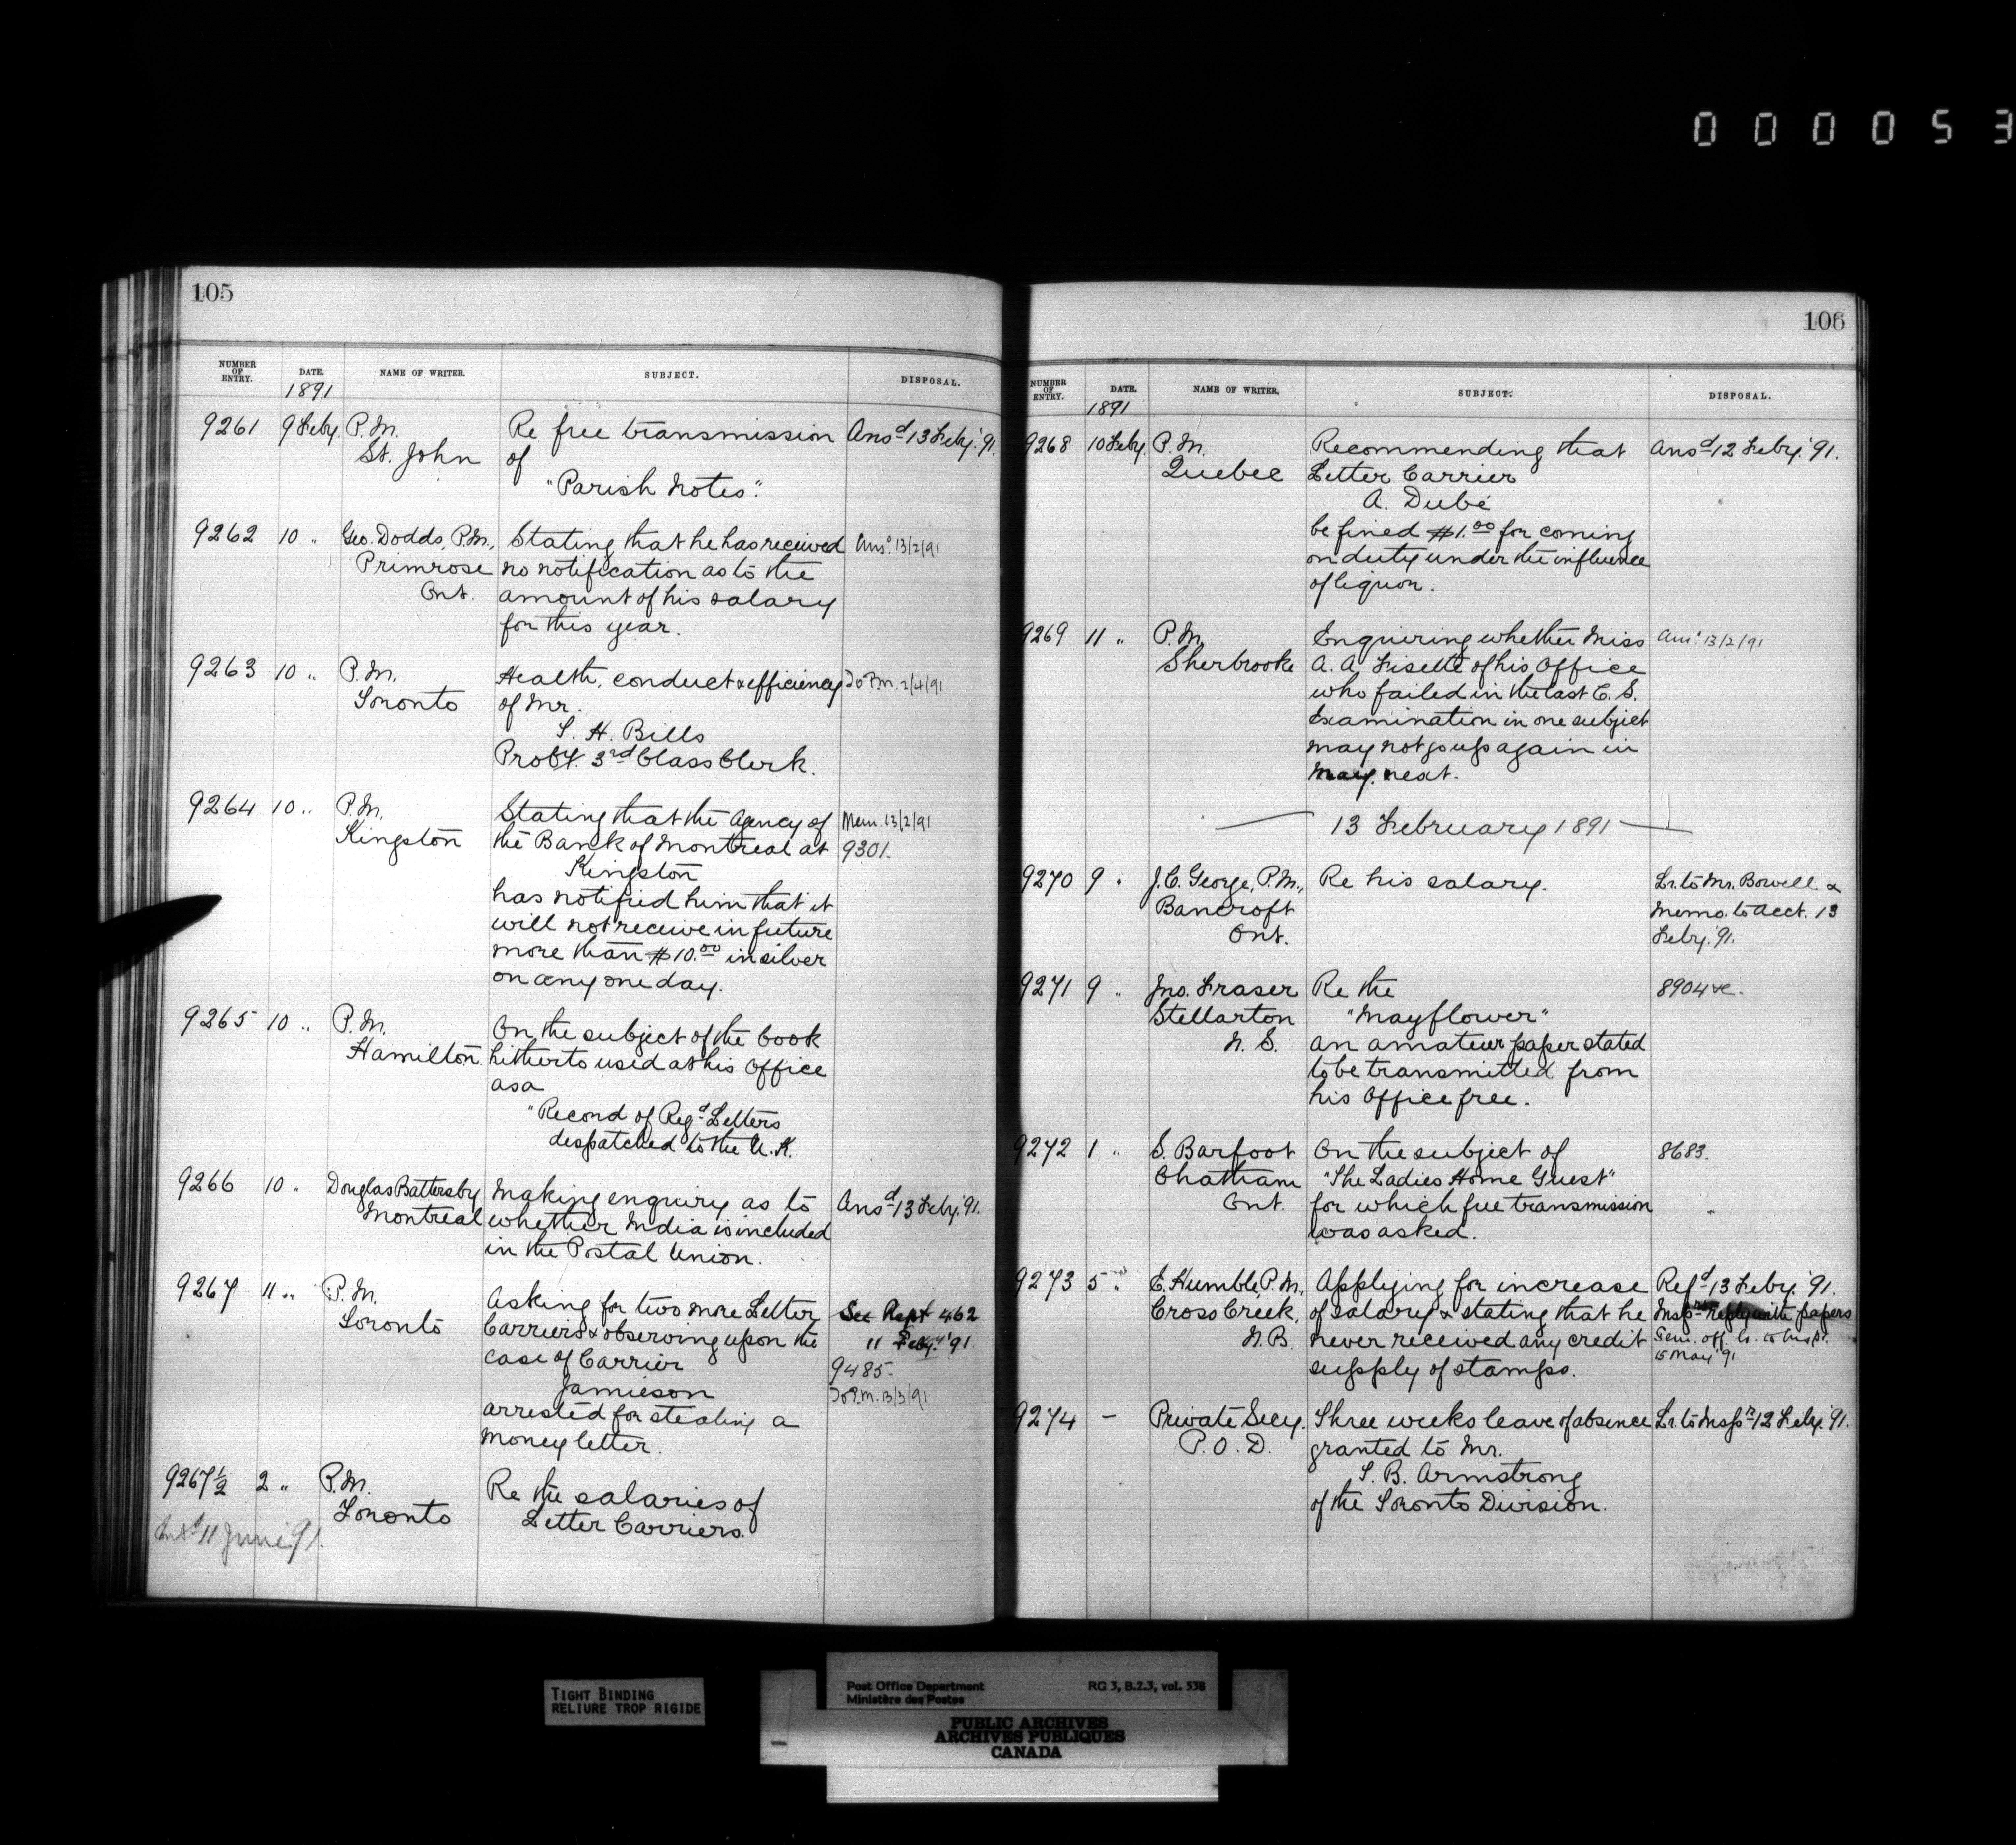 0 0 0 0 5 3
105
NUMBER OF ENTRY. DATE. NAME OF WRITER. SUBJECT. DISPOSAL.
1891
9261 9 Feby. P.M. Re free transmission Ansd 13 Feby. '91.
St. John of
"Parish Notes".
9262 10 " Geo. Dodds, P.M., Stating that he has received Ansd 13/2/91
Primrose no notification as to the
Ont. amount of his salary
for this year.
9263 10 " P.M. Health, conduct & efficiency To P.M. 2/4/91
Toronto of Mr.
S. H. Bills
Proby. 3rd Class Clerk.
9264 10 " P.M. Stating that the Agency of Mem. 13/2/91
Kingston the Bank of Montreal at 9301.
Kingston
has notified him that it
will not receive in future
more than $10.00 in silver
on any one day.
9265 10 " P.M. On the subject of the book
Hamilton. hitherto used at his Office
as a
"Record of Regd Letters
despatched to the U.K.
9266 10 " Douglas Battersby Making enquiry as to Ansd 13 Feby. '91.
Montreal whether India is included
in the Postal Union.
9267 11 " P.M. Asking for two more Letter See Rept 462
Toronto Carriers & observing upon the 11 Feby. '91
case of Carrier 9485.
Jamieson To P.M. 13/3/91
arrested for stealing a
money letter.
9267½ 2 " P.M. Re the salaries of
Toronto Letter Carriers.
11 June 91.
106
NUMBER OF ENTRY. DATE. NAME OF WRITER. SUBJECT. DISPOSAL.
1891
9268 10 Feby. P.M. Recommending that Ansd 12 Feby. '91.
Quebec Letter Carrier
A. Dubé
be fined $1.00 for coming
on duty under the influence
of liquor.
9269 11 " P.M. Enquiring whether Miss Ansd 13/2/91
Sherbrooke A. A. Fisette of his Office
who failed in the last C. S.
Examination in one subject
may not go up again in
May next.
13 February 1891
9270 9 " J. C. George, P.M., Re his salary. Lr. to Mr. Bowell &
Bancroft Memo. to Acct. 13
Ont. Feby. '91.
9271 9 " Jno. Fraser Re the 8904 &c.
Stellarton "Mayflower"
N. S. an amateur paper stated
to be transmitted from
his Office free.
9272 1 " S. Barfoot On the subject of 8683.
Chatham "The Ladies Home Guest"
Ont. for which free transmission
was asked.
9273 5 " E. Humble, P.M., Applying for increase Refd 13 Feby. '91.
Cross Creek, of salary & stating that he Inspr reply with papers
N.B. never received any credit Gen. off. lr. to Inspr.
supply of stamps. 15 May '91
9274 — Private Secy. Three weeks leave of absence Lr. to Inspr 12 Feby. '91.
P. O. D. granted to Mr.
S. B. Armstrong
of the Toronto Division.
TIGHT BINDING
RELIURE TROP RIGIDE
Post Office Department RG 3, B.2.3, vol. 538
Ministère des Postes
PUBLIC ARCHIVES
ARCHIVES PUBLIQUES
CANADA